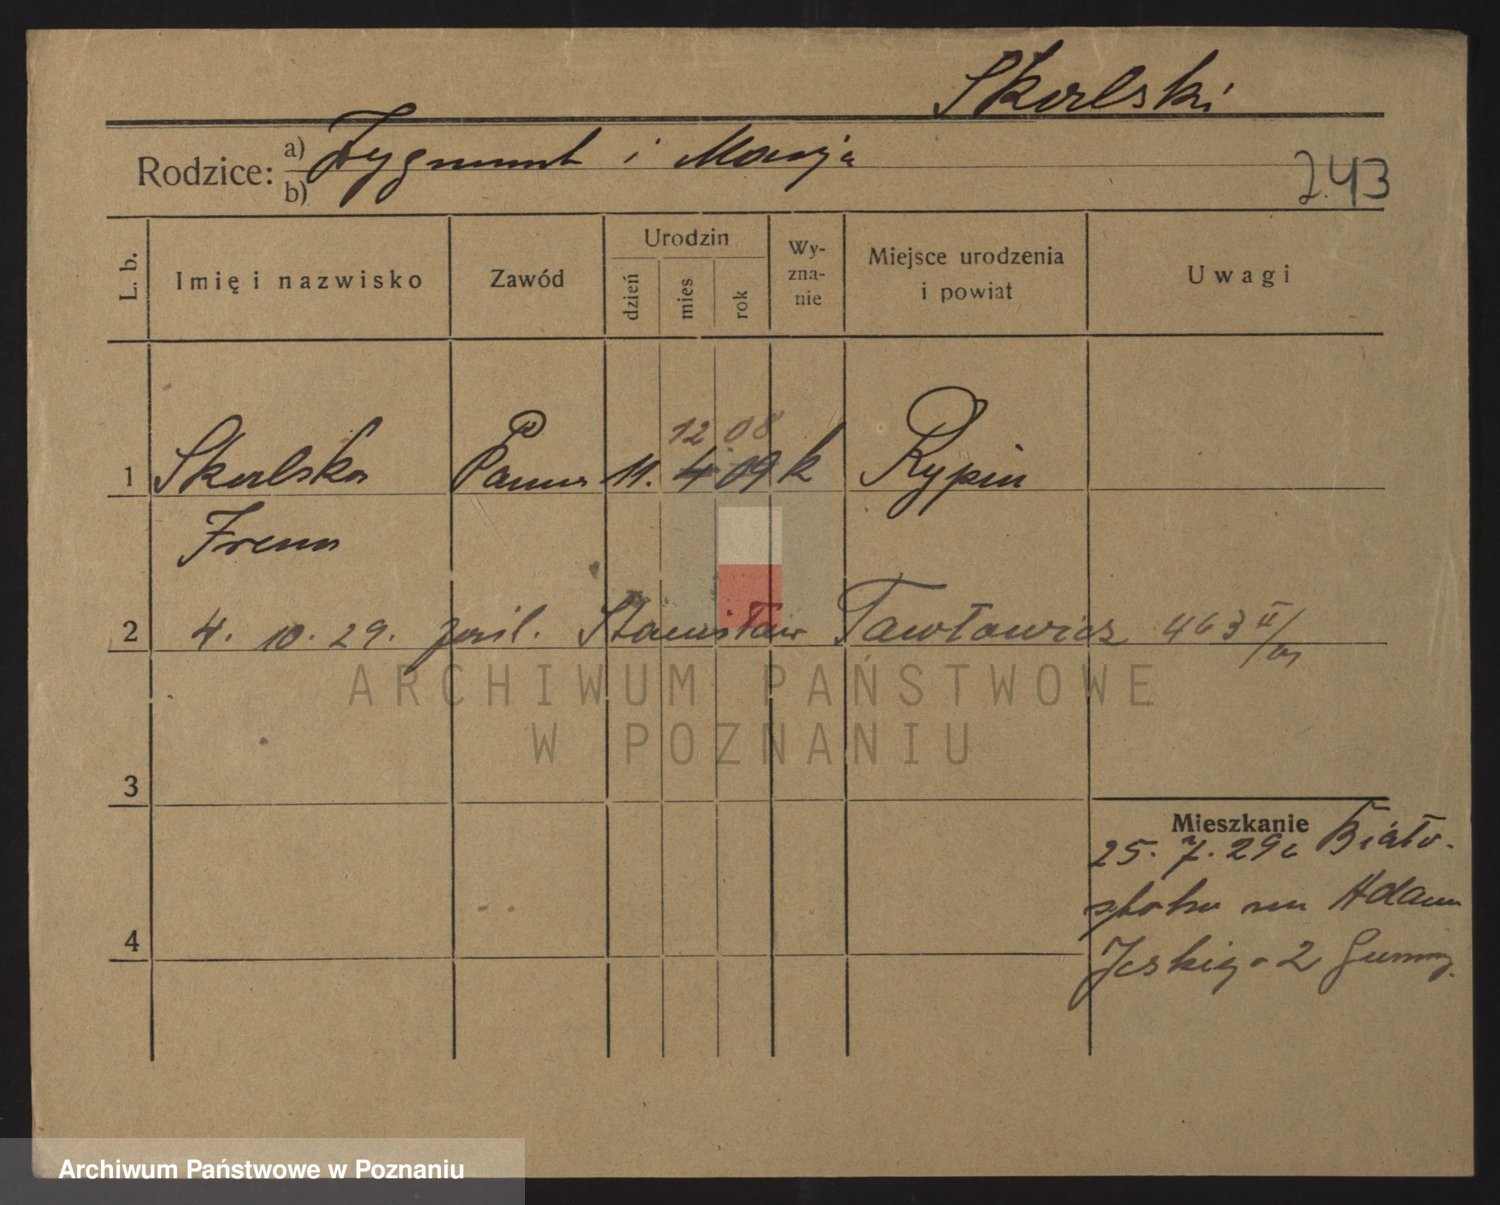 Skorlski
Rodzice: a) Zygmunt i Marja
b)
243
L. b.
Imię i nazwisko
Zawód
Urodzin
dzień
mies
rok
Wy-
zna-
nie
Miejsce urodzenia
i powiat
Uwagi
12 08
1 Skorlska Panna 11. 4 09 k Rypin
Irena
2 4. 10. 29. Stanisław Pawłowicz 463 II/
3
Mieszkanie
25. 7. 29 z Biało-
stoku Adam
2 Gumny.
4
ARCHIWUM PAŃSTWOWE
W POZNANIU
Archiwum Państwowe w Poznaniu